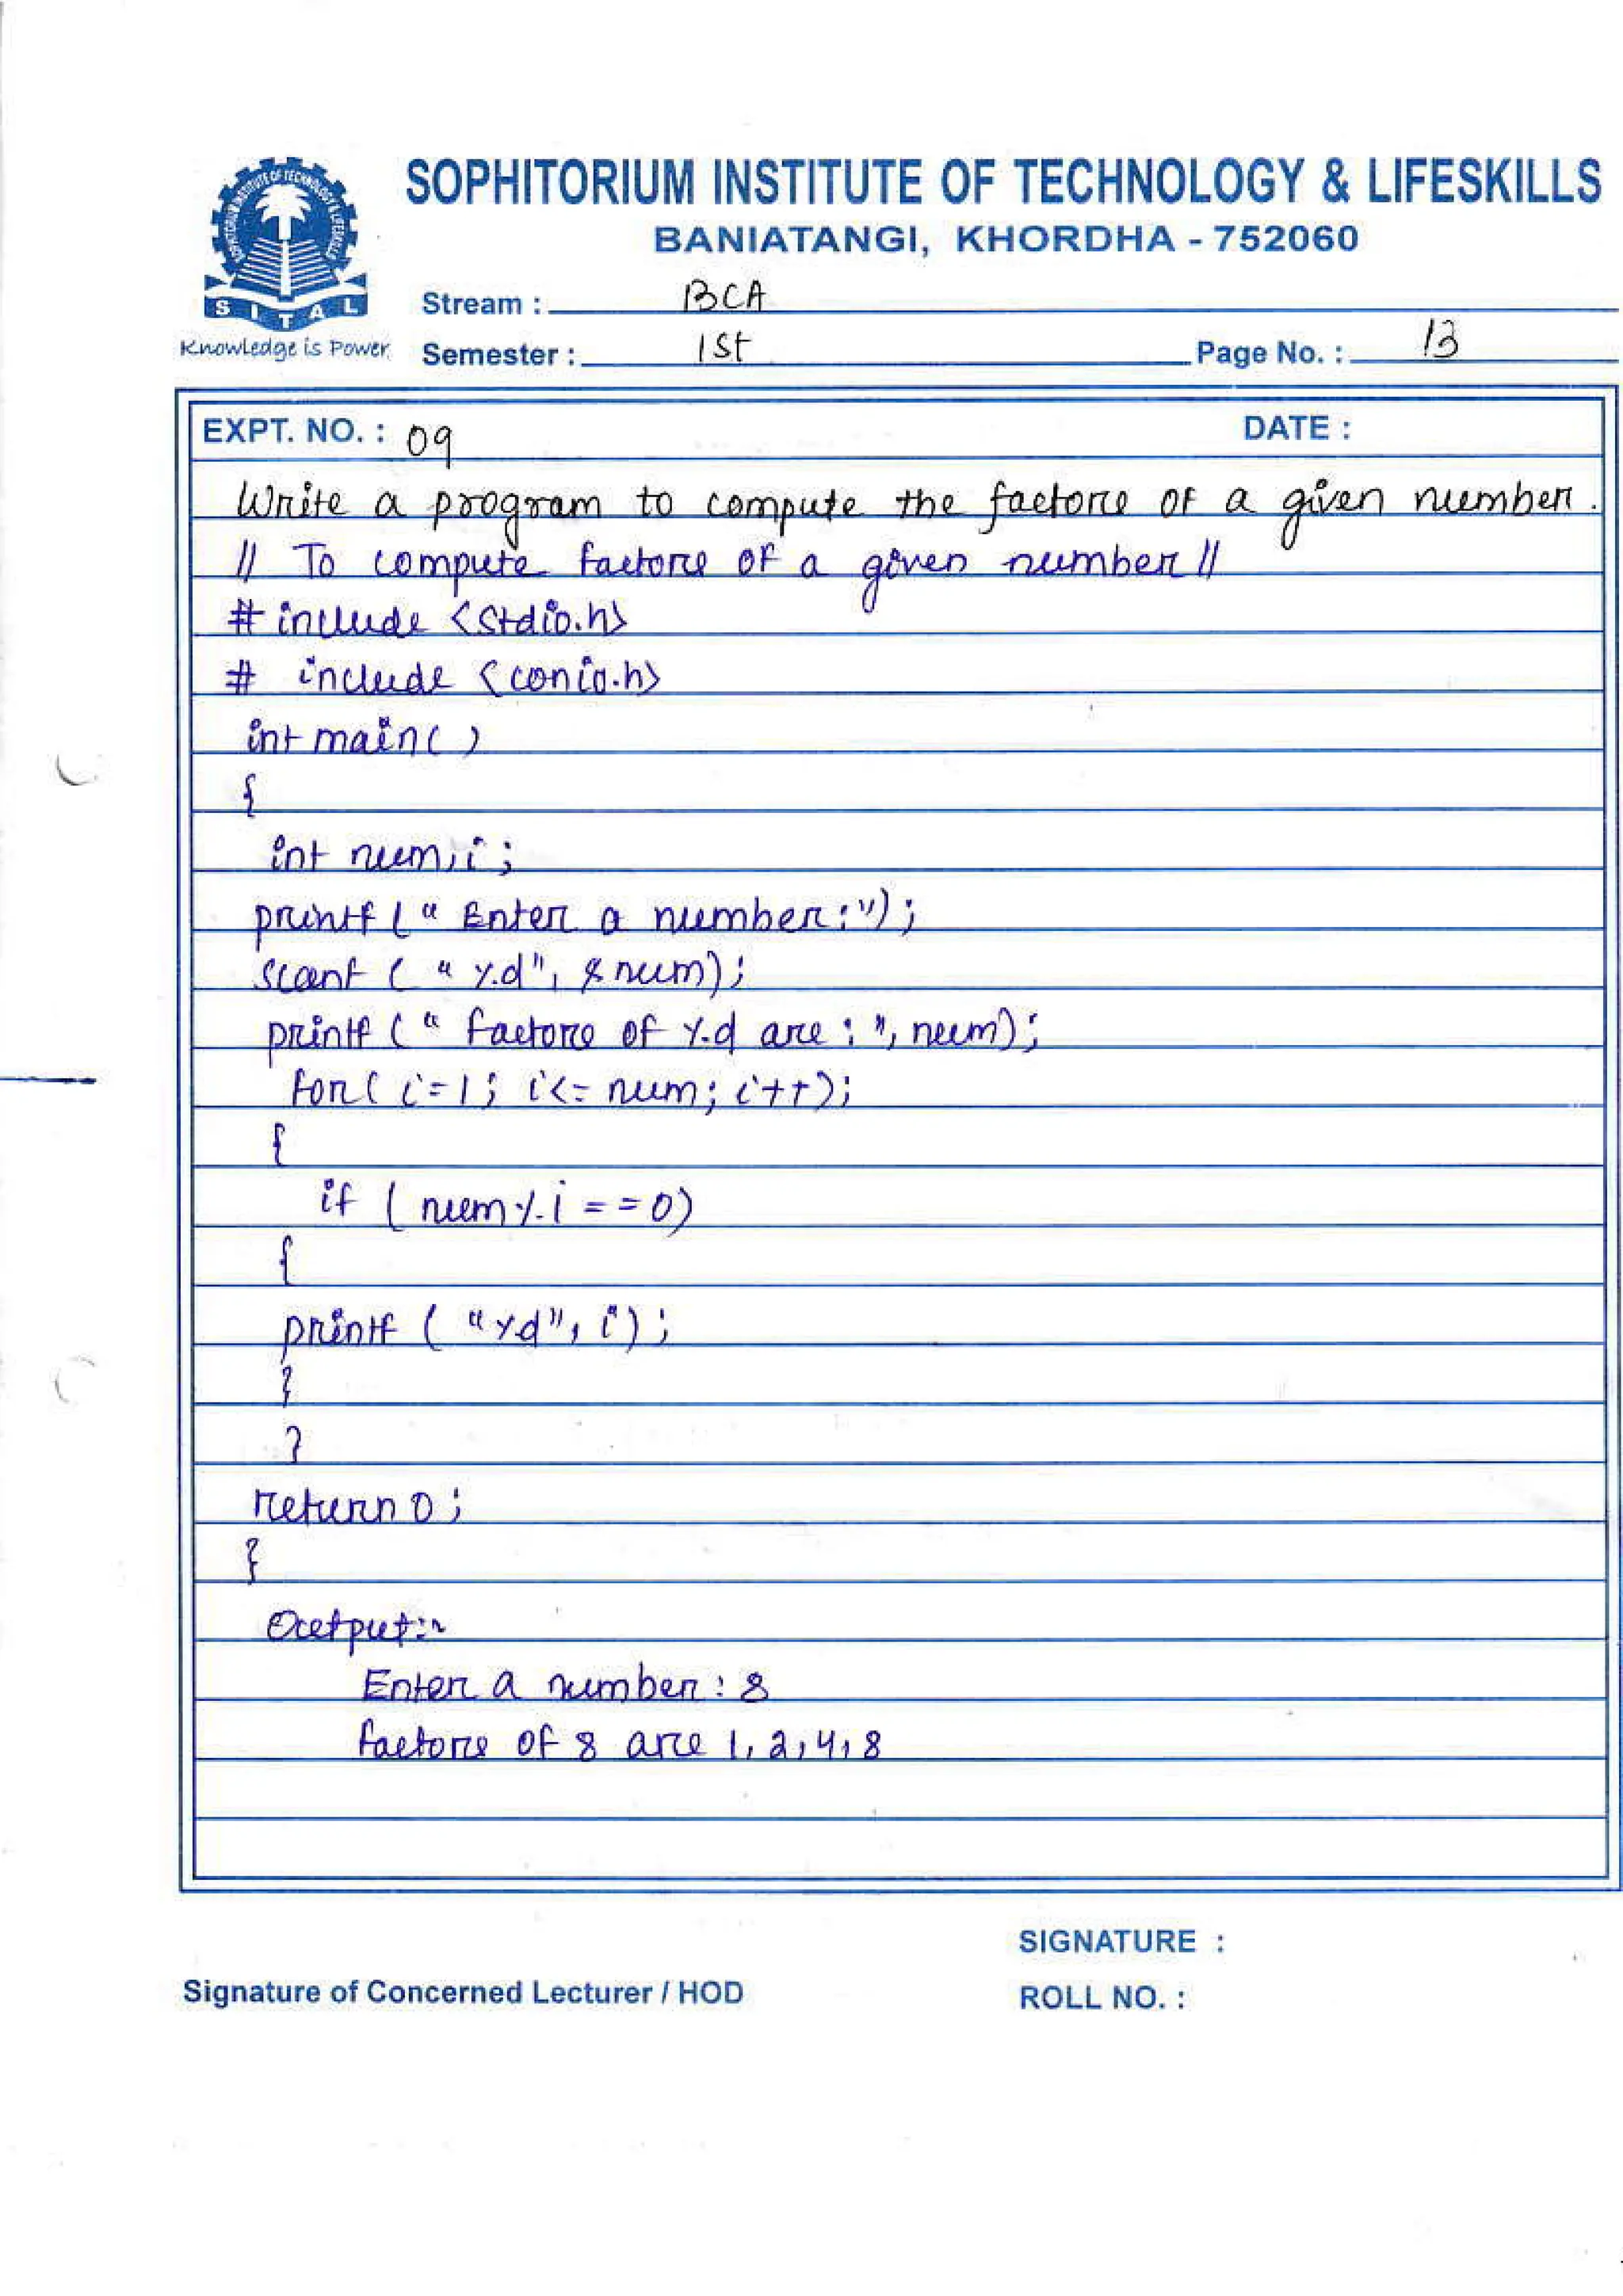 SOPHITORIUM INSTITUTE OF TECHNOLOGY & LIFESKILLS
BANIATANGI, KHORDHA - 752060
SITAL
Knowledge is Power
Stream : BCA
Semester : 1st Page No. : 13
EXPT. NO. : 09 DATE :
Write a program to compute the factors of a given number.
// To compute factors of a given number //
# include <stdio.h>
# include <conio.h>
int main( )
{
int num, i ;
printf ( " Enter a number : " ) ;
scanf ( " %d" , & num) ;
printf ( " factors of %d are : " , num) ;
for( i = 1 ; i <= num ; i++) ;
{
if ( num % i = = 0)
{
printf ( "%d" , i ) ;
}
}
return 0 ;
}
Output:-
Enter a number : 8
factors of 8 are 1, 2, 4, 8
SIGNATURE :
Signature of Concerned Lecturer / HOD
ROLL NO. :